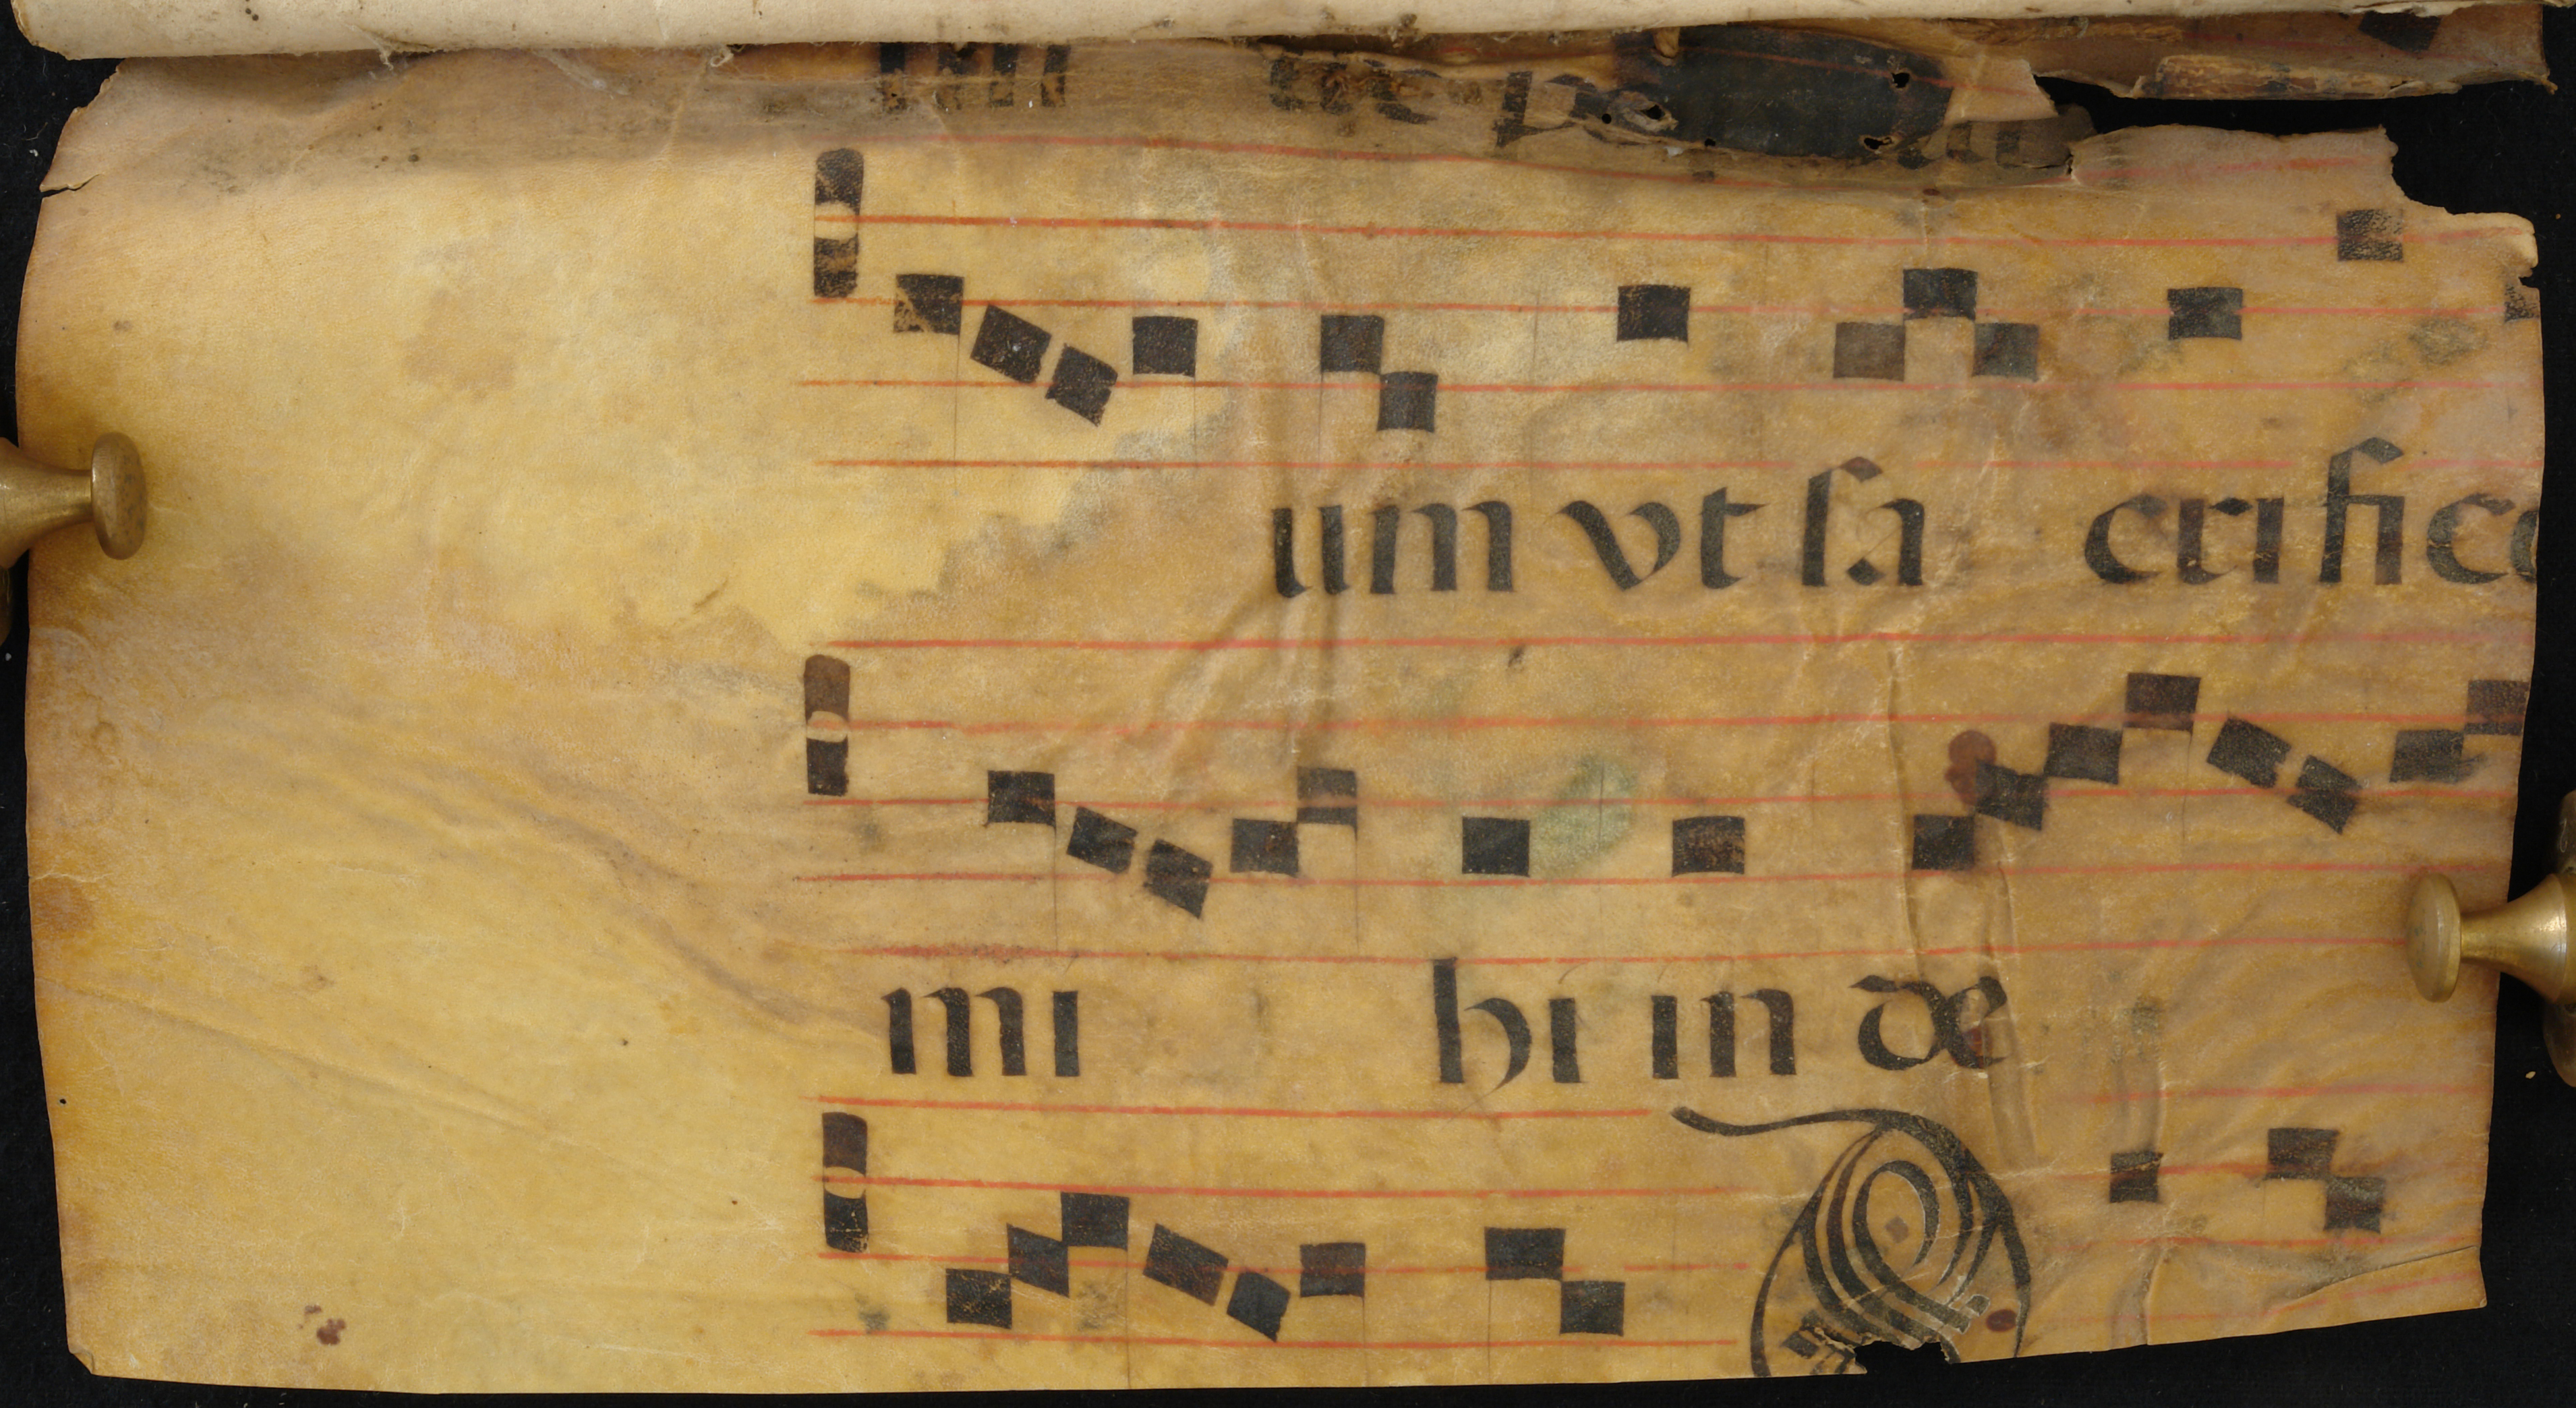 um vt sa crifice
mi hi in de